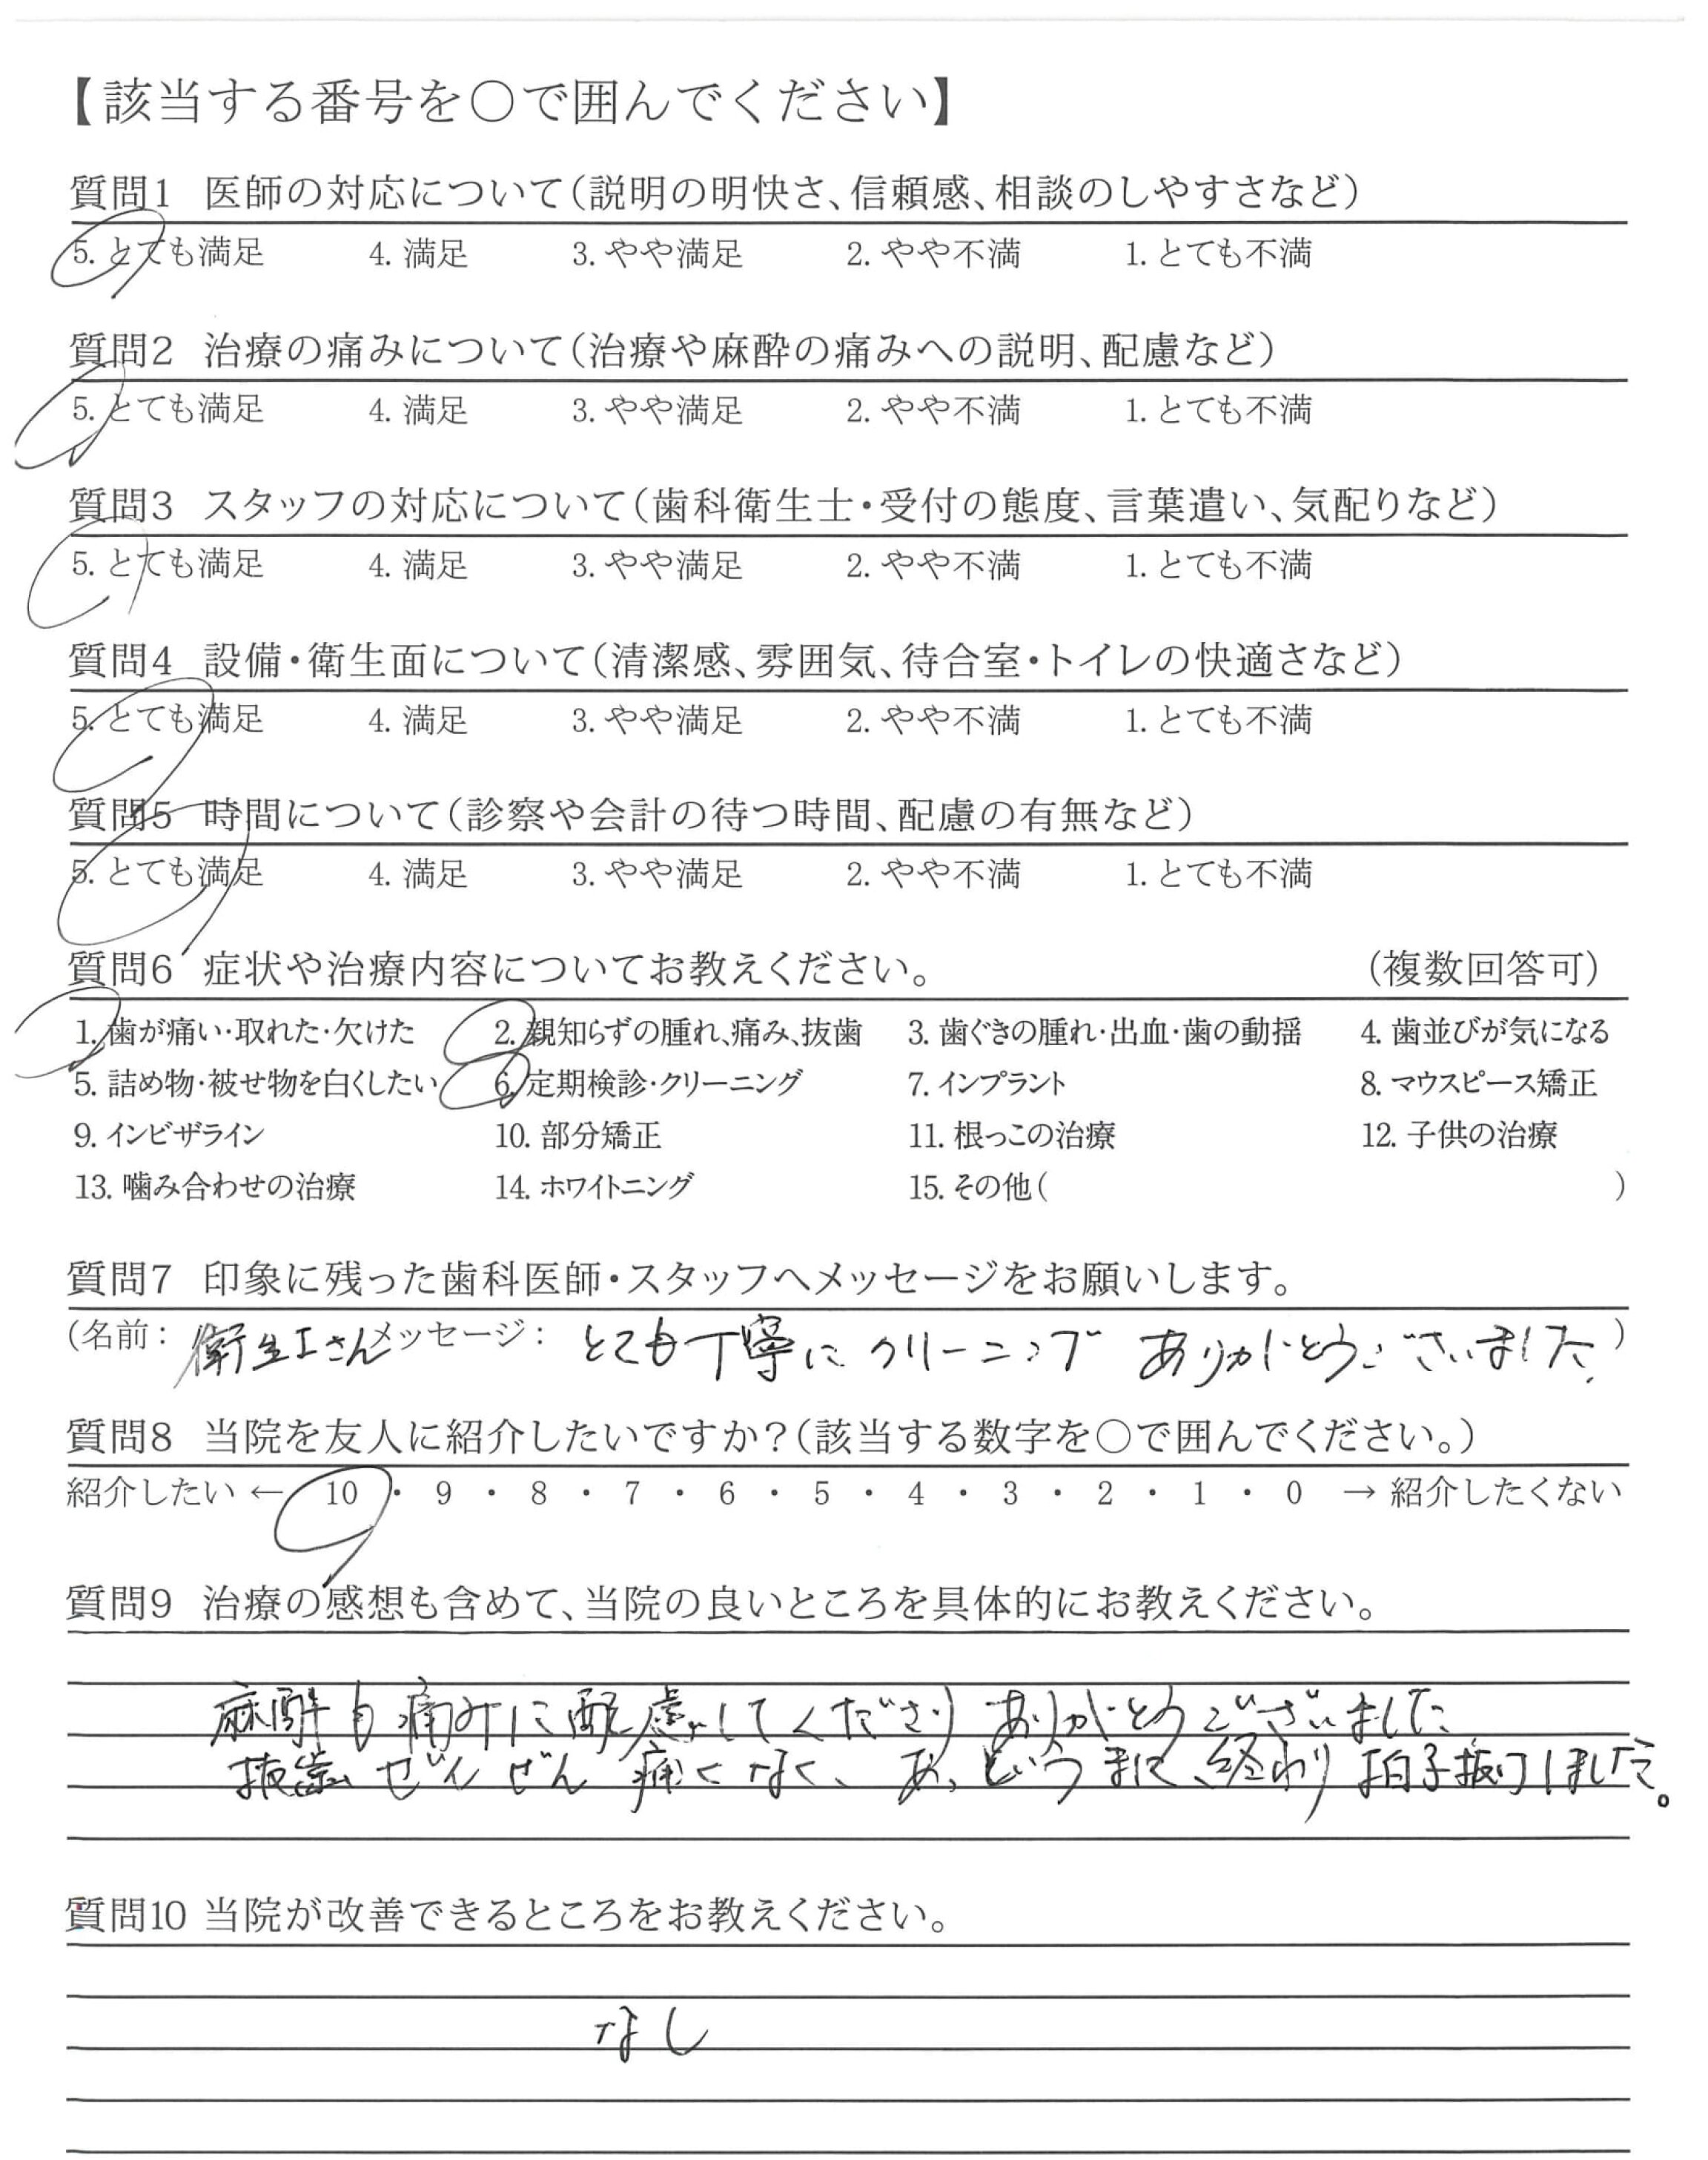 【該当する番号を○で囲んでください】
質問1 医師の対応について(説明の明快さ、信頼感、相談のしやすさなど)
5. とても満足 4. 満足 3. やや満足 2. やや不満 1. とても不満
質問2 治療の痛みについて(治療や麻酔の痛みへの説明、配慮など)
5. とても満足 4. 満足 3. やや満足 2. やや不満 1. とても不満
質問3 スタッフの対応について(歯科衛生士・受付の態度、言葉遣い、気配りなど)
5. とても満足 4. 満足 3. やや満足 2. やや不満 1. とても不満
質問4 設備・衛生面について(清潔感、雰囲気、待合室・トイレの快適さなど)
5. とても満足 4. 満足 3. やや満足 2. やや不満 1. とても不満
質問5 時間について(診察や会計の待つ時間、配慮の有無など)
5. とても満足 4. 満足 3. やや満足 2. やや不満 1. とても不満
質問6 症状や治療内容についてお教えください。 (複数回答可)
1. 歯が痛い・取れた・欠けた 2. 親知らずの腫れ、痛み、抜歯 3. 歯ぐきの腫れ・出血・歯の動揺 4. 歯並びが気になる
5. 詰め物・被せ物を白くしたい 6. 定期検診・クリーニング 7. インプラント 8. マウスピース矯正
9. インビザライン 10. 部分矯正 11. 根っこの治療 12. 子供の治療
13. 噛み合わせの治療 14. ホワイトニング 15. その他( )
質問7 印象に残った歯科医師・スタッフへメッセージをお願いします。
(名前: 衛生士さん メッセージ: とても丁寧に クリーニング ありがとうございました)
質問8 当院を友人に紹介したいですか?(該当する数字を○で囲んでください。)
紹介したい ← 10 ・ 9 ・ 8 ・ 7 ・ 6 ・ 5 ・ 4 ・ 3 ・ 2 ・ 1 ・ 0 → 紹介したくない
質問9 治療の感想も含めて、当院の良いところを具体的にお教えください。
麻酔も痛みに配慮してくださり ありがとうございました
抜歯 ぜんぜん 痛くなく、あっというまに 終わり 拍子抜けしました。
質問10 当院が改善できるところをお教えください。
なし